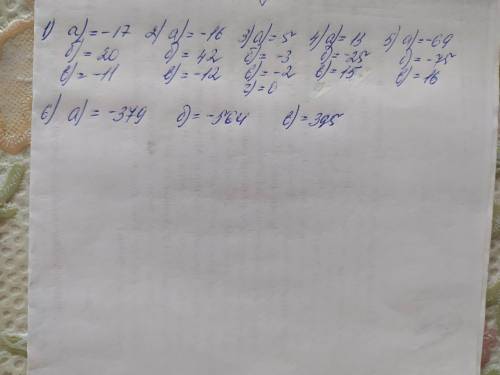 1) а)=-17 2) а)=-16 3) а)=5 4) а)=13 5) а)=-69
б)=20 б)=42 б)=-3 б)=-25 б)=-75
в)=-11 в)=-12 в)=-2 в)=15 в)=16
г)=0
6) а)=-379 б)=-564 в)=395